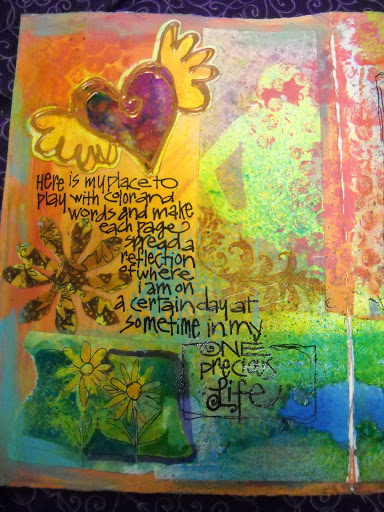 Here is my place to
play with color and
words and make
each page
spread a
reflection
of where
i am on
a certain day at
sometime in my
ONE
precious
Life